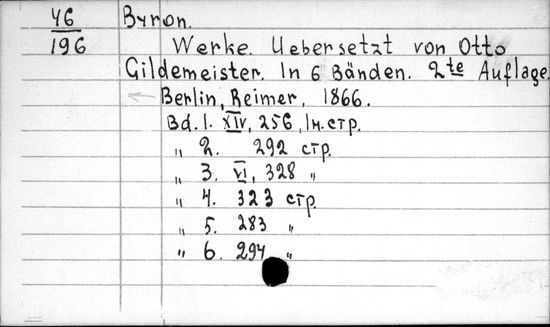 46 Byron.
196 Werke. Uebersetzt von Otto
Gildemeister. In 6 Bänden. 2te Auflage.
Berlin, Reimer, 1866.
Bd. 1. XIV, 256, 1н. стр.
" 2. 292 стр.
" 3. VI, 328 "
" 4. 323 стр.
" 5. 283 "
" 6. 294 "